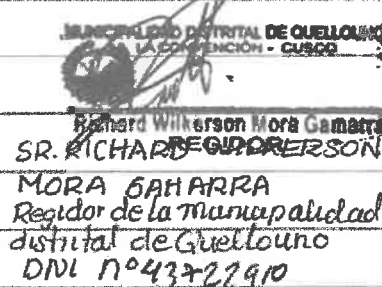 MUNICIPALIDAD DISTRITAL DE QUELLOUNO
LA CONVENCIÓN - CUSCO
Richard Wilkerson Mora Gamarra
REGIDOR
SR. RICHARD WILKERSON
MORA GAMARRA
Regidor de la Municipalidad
distrital de Quellouno
DNI nº43722910